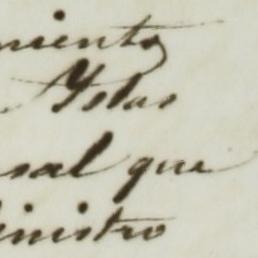 miento
Yslas
sal que
inistro